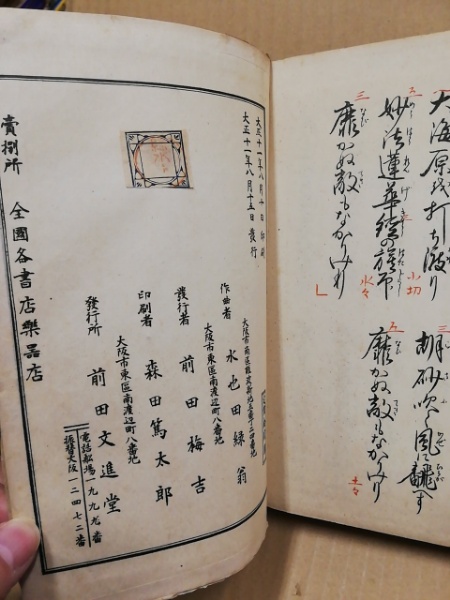 大海原を打ち渡り
妙法蓮華経の旗印
靡かぬ敵もなかりけり
胡砂吹く風に翻す
靡かぬ敵もなかりけり
大正十一年八月十日印刷
大正十一年八月十五日發行
作曲者 水也田緑翁
大阪市東區南渡辺町八番地
發行者 前田梅吉
印刷者 森田篤太郎
大阪市東區南渡辺町八番地
發行所 前田文進堂
電話船場一九九九番
振替大阪一二四七二番
賣捌所 全國各書店樂器店